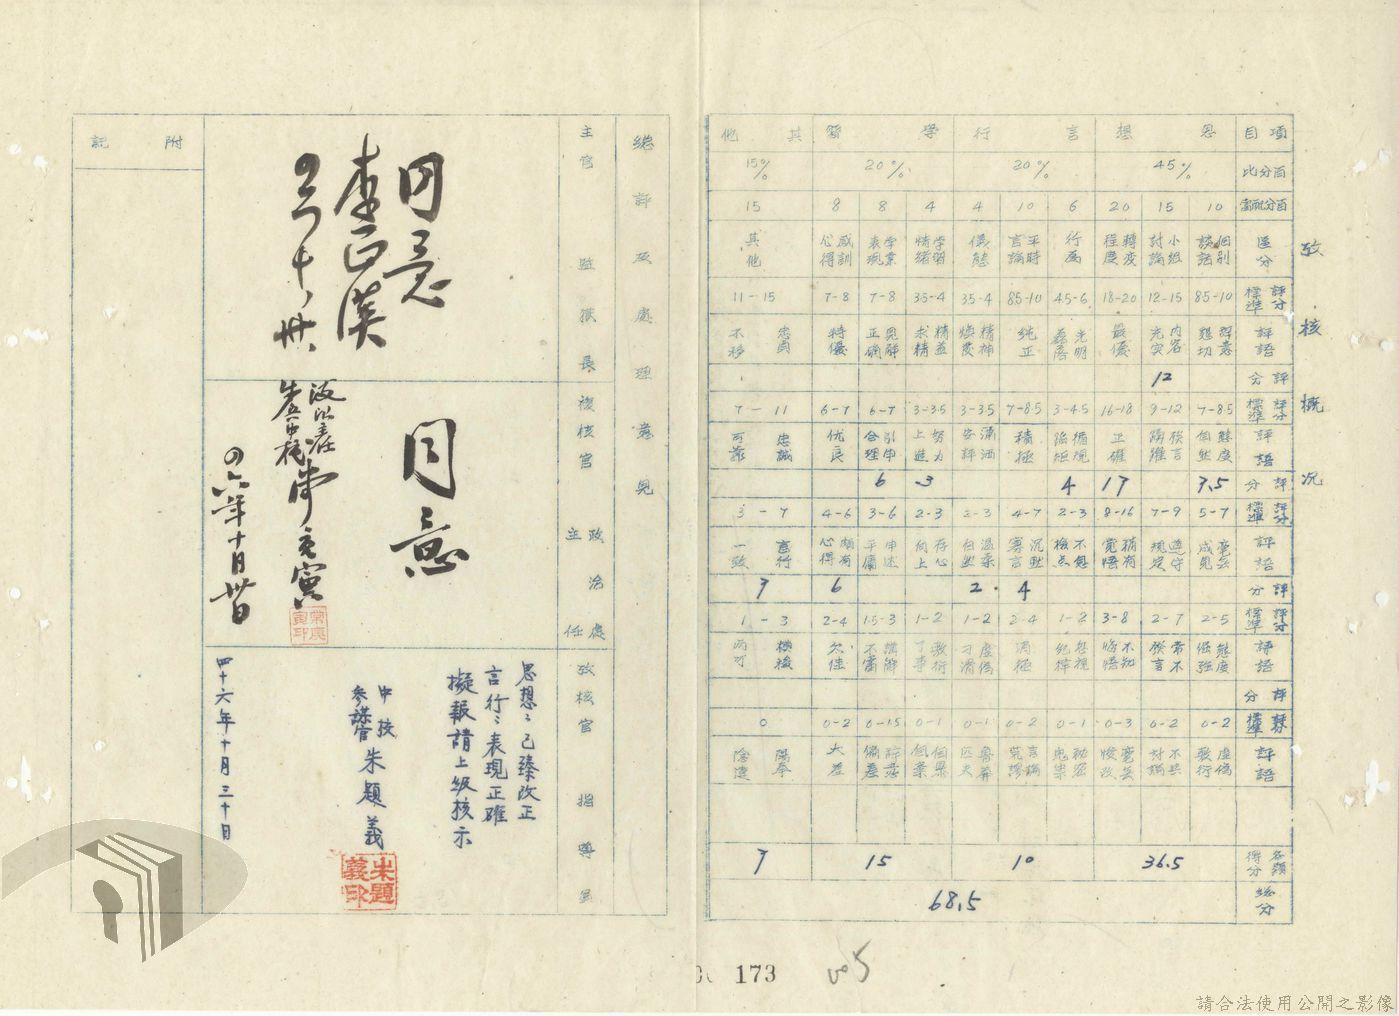 考核概況
項目 思想 言行 學習 其他
百分比 45% 20% 20% 15%
百分配當 10 15 20 6 10 4 4 8 8 15
區分 個別談話 小組討論 轉變程度 行為 平時言論 儀態 學習情緒 學業表現 感訓心得 其他
評分標準 85-10 12-15 18-20 45-6 85-10 35-4 35-4 7-8 7-8 11-15
評語 懇切 內容充實 最優 光明磊落 純正 精神煥發 精益求精 見解正確 特優 忠貞不移
評分 12
評分標準 7-8.5 9-12 16-18 3-4.5 7-8.5 3-3.5 3-3.5 6-7 6-7 7-11
評語 態度自然 發言踴躍 正確 循規蹈矩 積極 瀟洒安詳 努力上進 引申合理 优良 忠誠可靠
評分 7.5 17 4 3 6
評分標準 5-7 7-9 8-16 2-3 4-7 2-3 2-3 3-6 4-6 3-7
評語 毫無成見 遵守規定 稍有覺悟 不怠檢点 沉默寡言 溫柔自然 存心向上 申述平庸 頗有心得 言行一致
評分 4 2. 6 7
評分標準 2-5 2-7 3-8 1-2 2-4 1-2 1-2 1.5-3 2-4 1-3
評語 態度倔强 常不發言 不知悔悟 消極 虛偽刁滑 敷衍了事 講解不當 欠佳 模稜兩可
評分
評分標準 0-2 0-2 0-3 0-1 0-2 0-1 0-1 0-1.5 0-2 0
評語 虛偽敷衍 不共討論 毫無悛改 言論荒謬 魯莽 自暴自棄 偏差 太差 陽奉陰違
各類得分 36.5 10 15 7
總分 68.5
173
總評及處理意見
主官 監獄長
同意
李正漢
複核官 政治處主任
同意
四六年十月卅日
考核官 指導員
思想:已臻改正
言行:表現正確
擬報請上級核示
中校
參謀官 朱題義
朱題義印
四十六年十月三十日
附記
請合法使用公開之影像